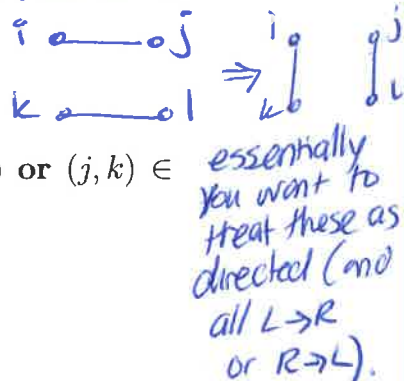 i j ⇒ i j
k l k l
or (j, k) ∈
essentially
you want to
treat these as
directed (and
all L→R
or R→L).